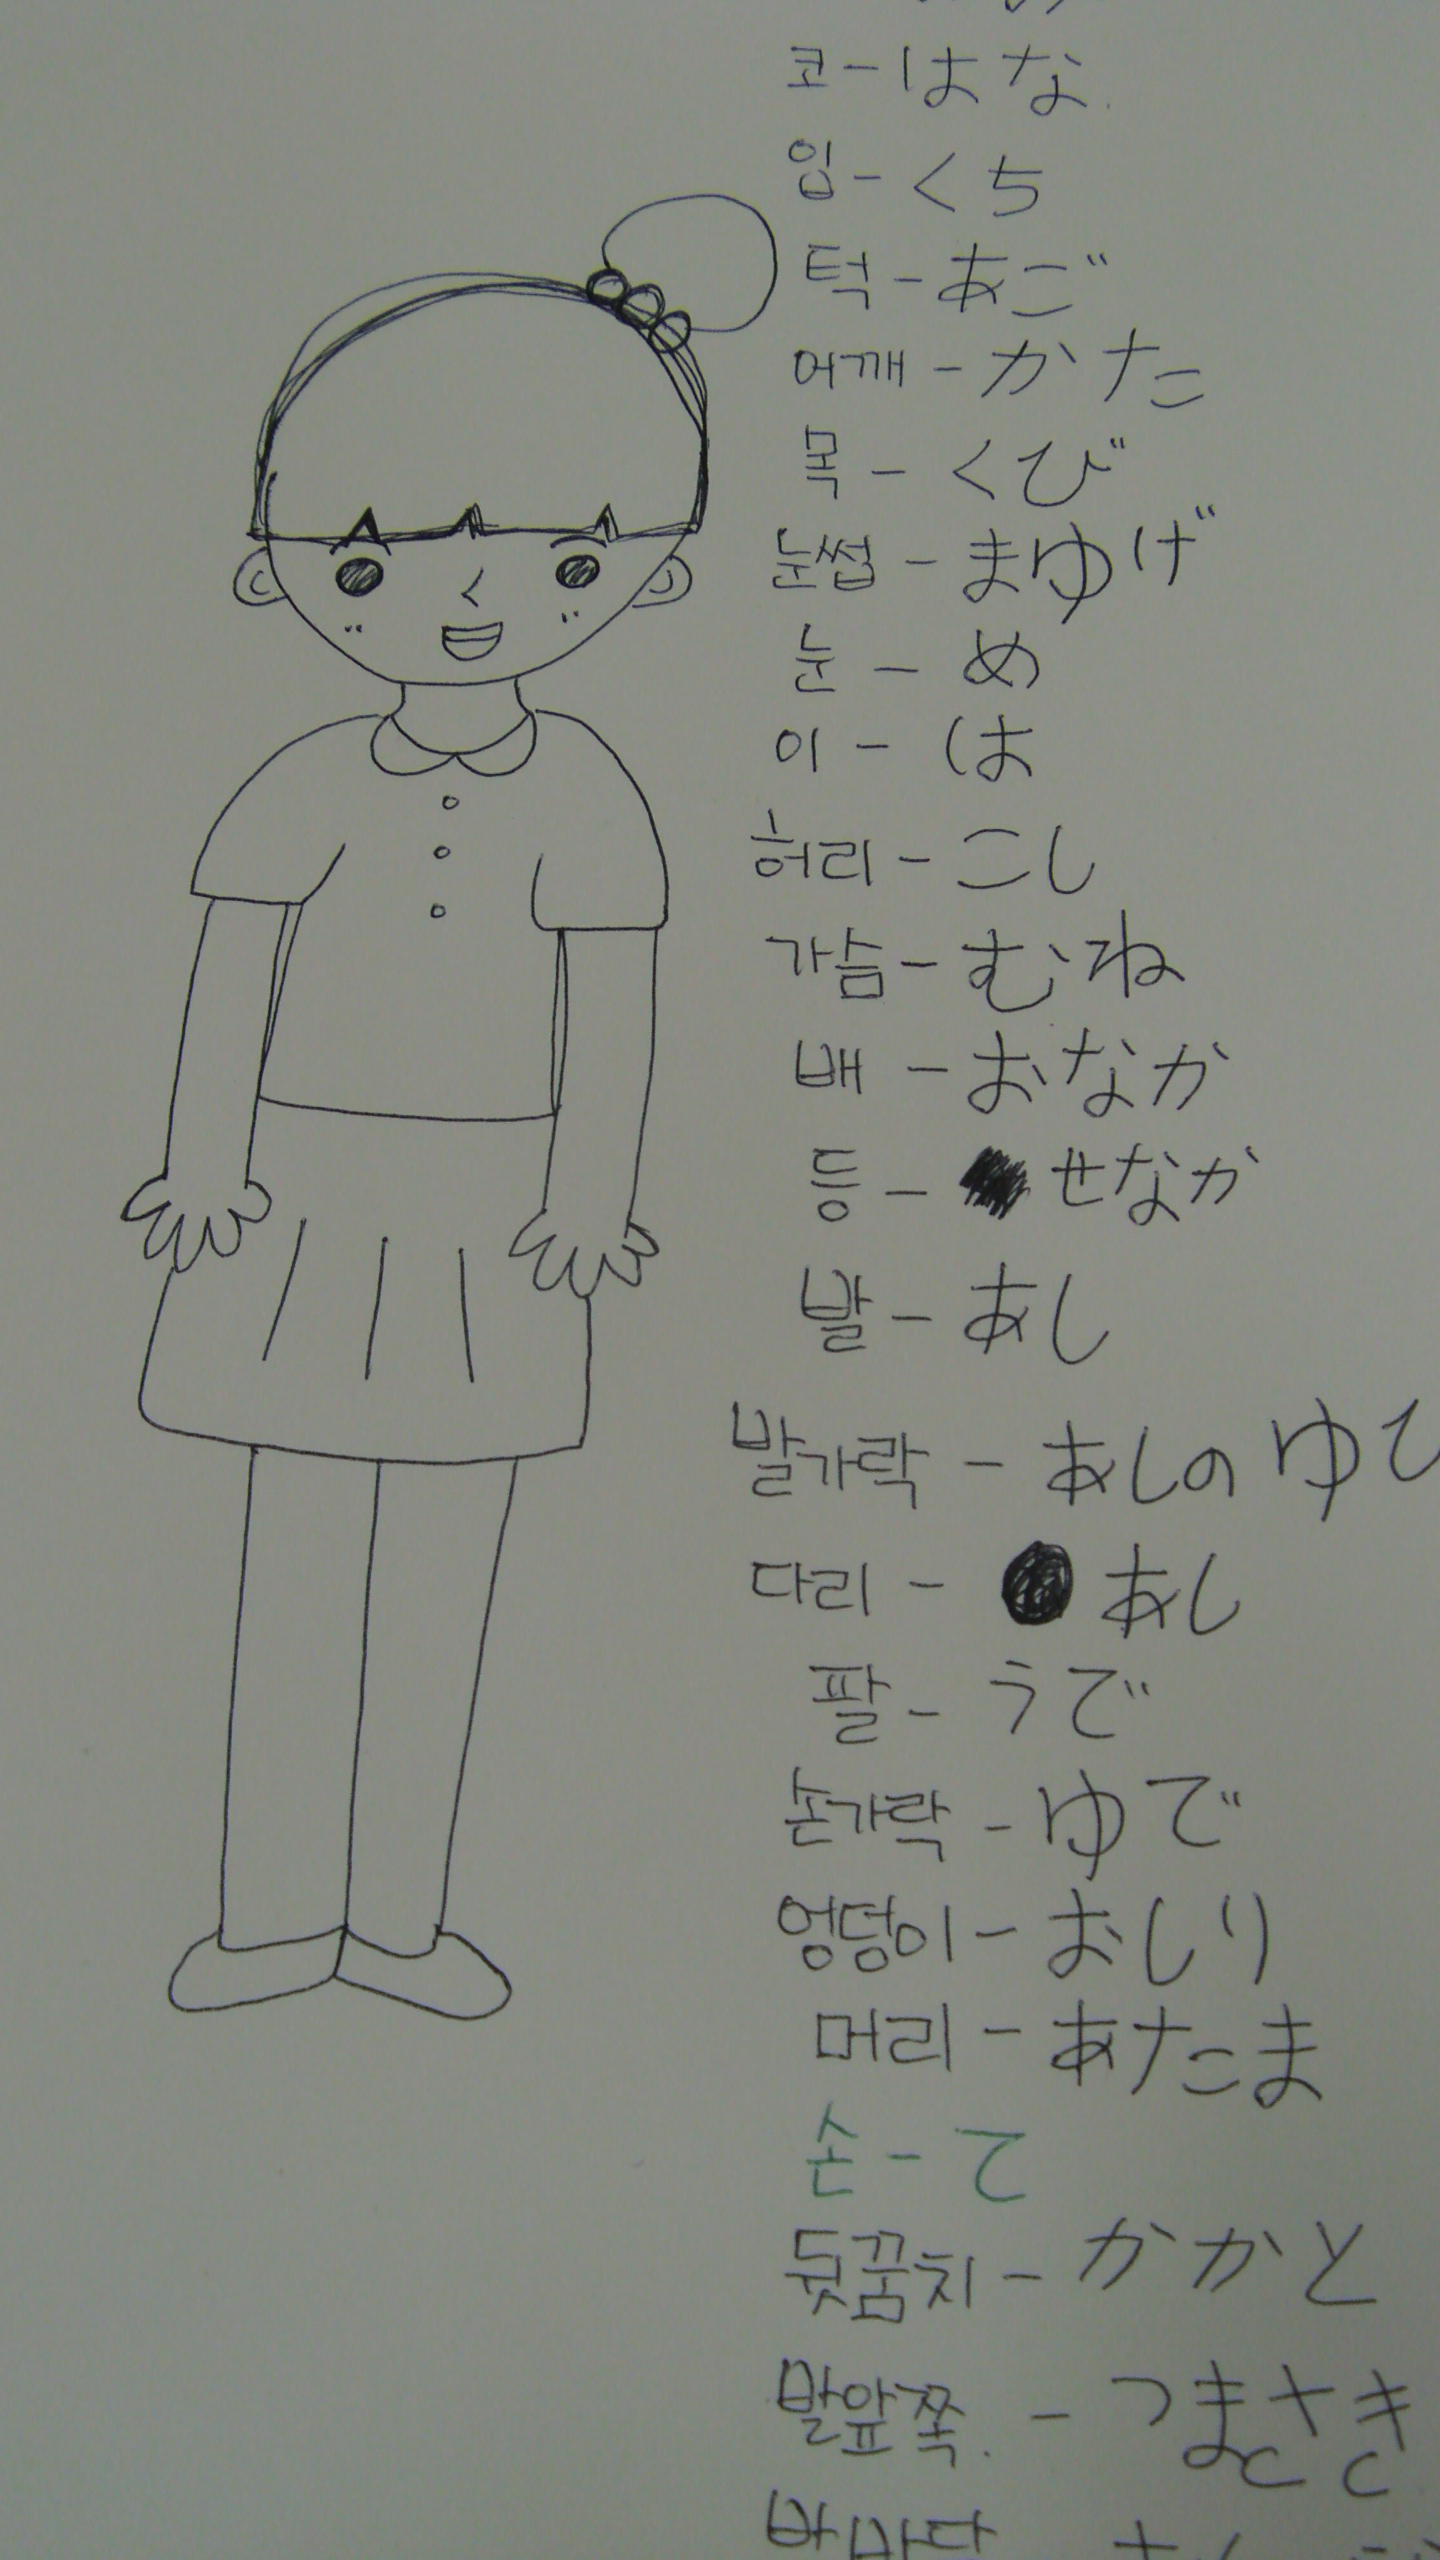 코 - はな
입 - くち
턱 - あご
어깨 - かた
목 - くび
눈썹 - まゆげ
눈 - め
이 - は
허리 - こし
가슴 - むね
배 - おなか
등 - せなか
발 - あし
발가락 - あしのゆ
다리 - あし
팔 - うで
손가락 - ゆで
엉덩이 - おしり
머리 - あたま
손 - て
뒷꿈치 - かかと
발앞쪽. - つまさき